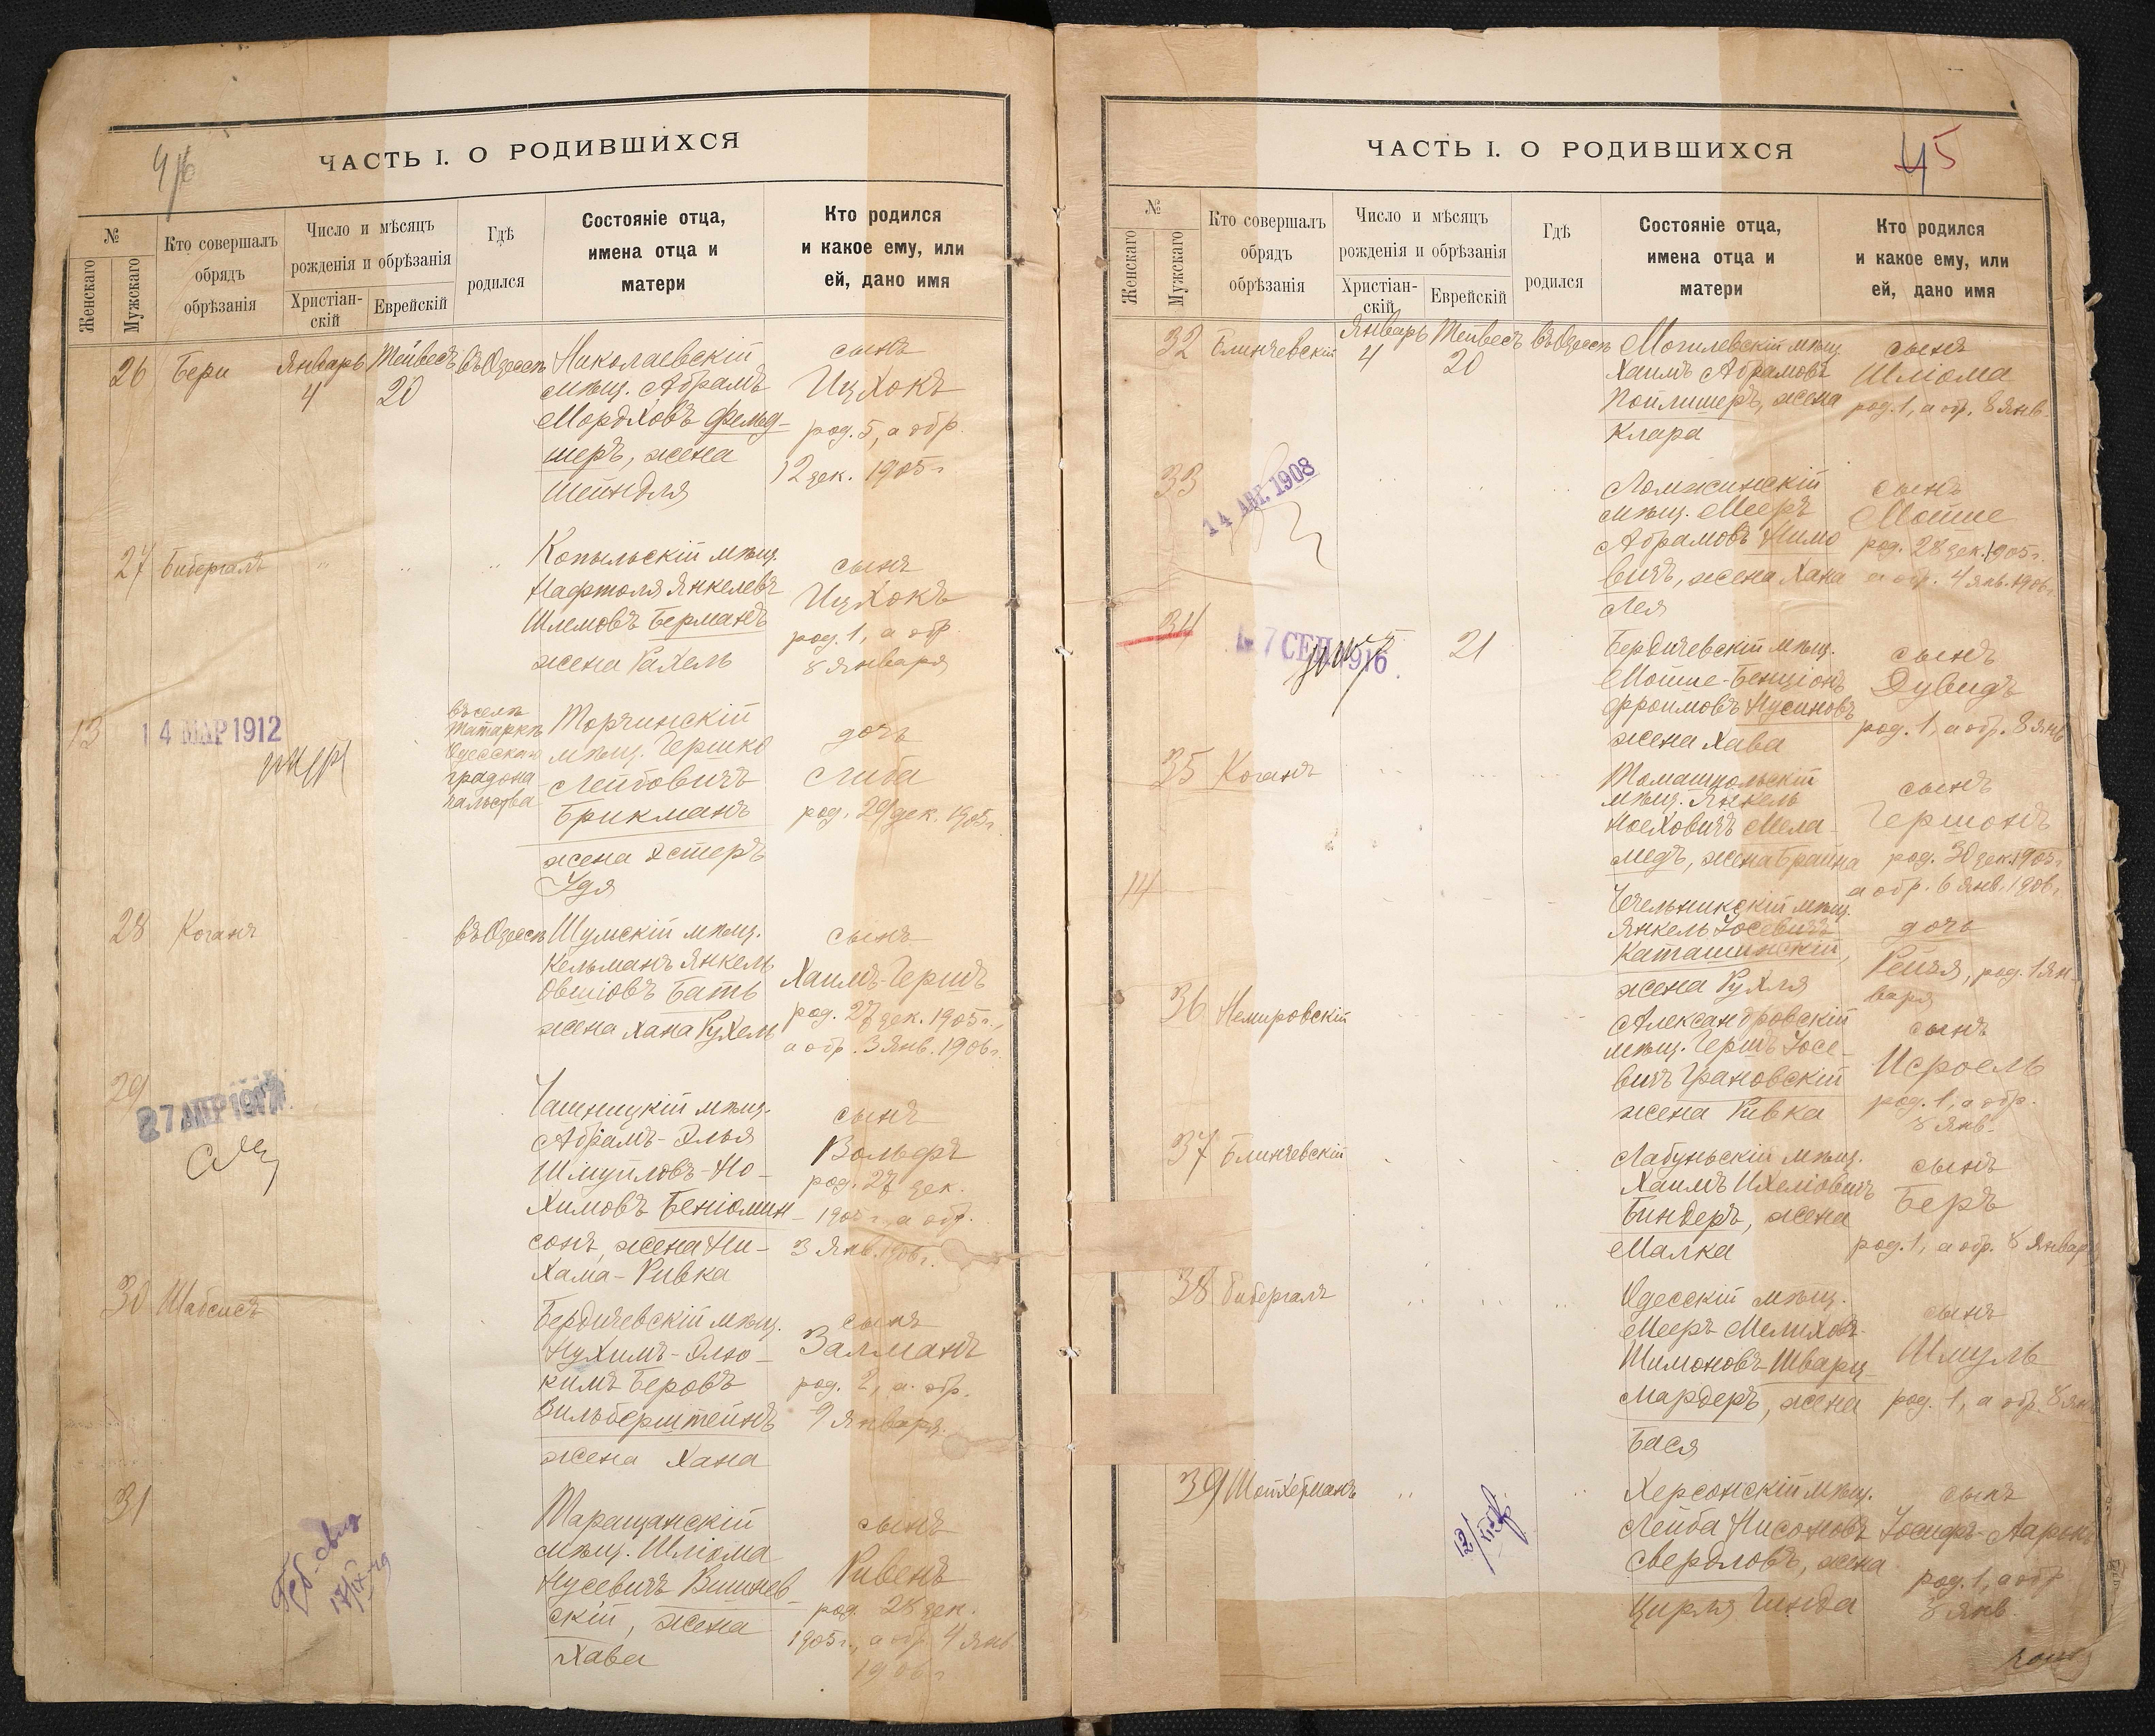 ЧАСТЬ I. О РОДИВШИХСЯ
№
Женскаго
Мужскаго
Кто совершалъ
обрядъ
обрѣзанія
Число и мѣсяцъ
рожденія и обрѣзанія
Христіан-
скій
Еврейскій
Гдѣ
родился
Состояніе отца,
имена отца и
матери
Кто родился
и какое ему, или
ей, дано имя
26 Бери Январь Тейвесъ въ Одессѣ Николаевскій сынъ
4 20 мѣщ. Абрамъ Ицхокъ
Мордховъ Фельд- род. 5, а обр.
шеръ, жена 12 дек. 1905 г.
Шейндля
27 Бибергалъ Копыльскій мѣщ. сынъ
Нафтоля Янкелевъ Ицхокъ
Шлемовъ Берманъ род. 1, а обр.
жена Рахель 8 Января
13 14 МАР 1912
въ селѣ
Татаркѣ
Одесскаго
градона
чальства
Торчинскій дочь
мѣщ. Гершко
Лейбовичъ Либа
Брикманъ род. 29 дек. 1905 г.
жена Эстеръ
Удя
28 Коганъ въ Одессѣ Шумскій мѣщ. сынъ
Кельманъ Янкель Хаимъ-Гершъ
Овшіовъ Бать род. 27 дек. 1905 г.,
жена Хана Рухель а обр. 3 Янв. 1906 г.
29
Чашницкій мѣщ. сынъ
Абрамъ-Элья Вольфъ
Шмуйловъ-Но- род. 27 дек.
химовъ Беніомин- 1905 г., а обр.
сонъ, жена Ни- 3 Янв. 1906 г.
хама-Ривка
30 Шабсисъ Бердичевскій мѣщ. сынъ
Нухимъ-Элю- Залманъ
кимъ Беровъ род. 2, а обр.
Зильберштейнъ 9 Января
жена Хана
31 Таращанскій сынъ
мѣщ. Шліома Рувенъ
Нусевичъ Вишнев- род. 28 дек.
скій, жена 1905 г., а обр. 4 Янв.
Хава 1906 г.
ЧАСТЬ I. О РОДИВШИХСЯ
45
№
Женскаго
Мужскаго
Кто совершалъ
обрядъ
обрѣзанія
Число и мѣсяцъ
рожденія и обрѣзанія
Христіан-
скій
Еврейскій
Гдѣ
родился
Состояніе отца,
имена отца и
матери
Кто родился
и какое ему, или
ей, дано имя
32 Блинчевскій Январь Тейвесъ въ Одессѣ Могилевскій мѣщ. сынъ
4 20 Хаимъ Абрамовъ Шліома
жена род. 1, а обр. 8 Янв.
Клара
33 14 АВГ. 1908
Ломжинскій сынъ
мѣщ. Мееръ Мошше
Абрамовъ род. 28 дек. 1905 г.
вичъ, жена Хана а обр. 4 Янв. 1906 г.
Лея
34 7 СЕН 1916 21 Бердичевскій мѣщ. сынъ
Мошше-Бенціонъ Дувидъ
Фроимовъ Нусиновъ род. 1, а обр. 8 Янв
жена Хава
35 Коганъ Томашпольскій сынъ
мѣщ. Янкель Гершонъ
Ноеховичъ Мела-
медъ, жена Брайна род. 30 дек. 1905 г.
а обр. 6 Янв. 1906 г.
14 Чечельникскій мѣщ.
Янкель Іосевичъ дочь
Каташинскій, Рейзя, род. 1 Ян-
жена Рухля варя
36 Немировскій Александровскій сынъ
мѣщ. Гершъ Іосе- Исроель
вичъ Грановскій род. 1, а обр.
жена Ривка 8 Янв.
37 Блинчевскій Лабуньскій мѣщ. сынъ
Хаимъ Ихеліовичъ Беръ
Биндеръ, жена
Малка род. 1, а обр. 8 Января
38 Бибергалъ Одесскій мѣщ. сынъ
Мееръ Мелиховъ- Шмуль
Шимоновъ Шварц-
мардеръ, жена род. 1, а обр. 8 Янв
Бася
39 Шойхерманъ Херсонскій мѣщ. сынъ
Лейба Нисоновъ Іосифъ-Ааронъ
Свердловъ, жена род. 1, а обр.
Цирля Гинда 8 Янв.